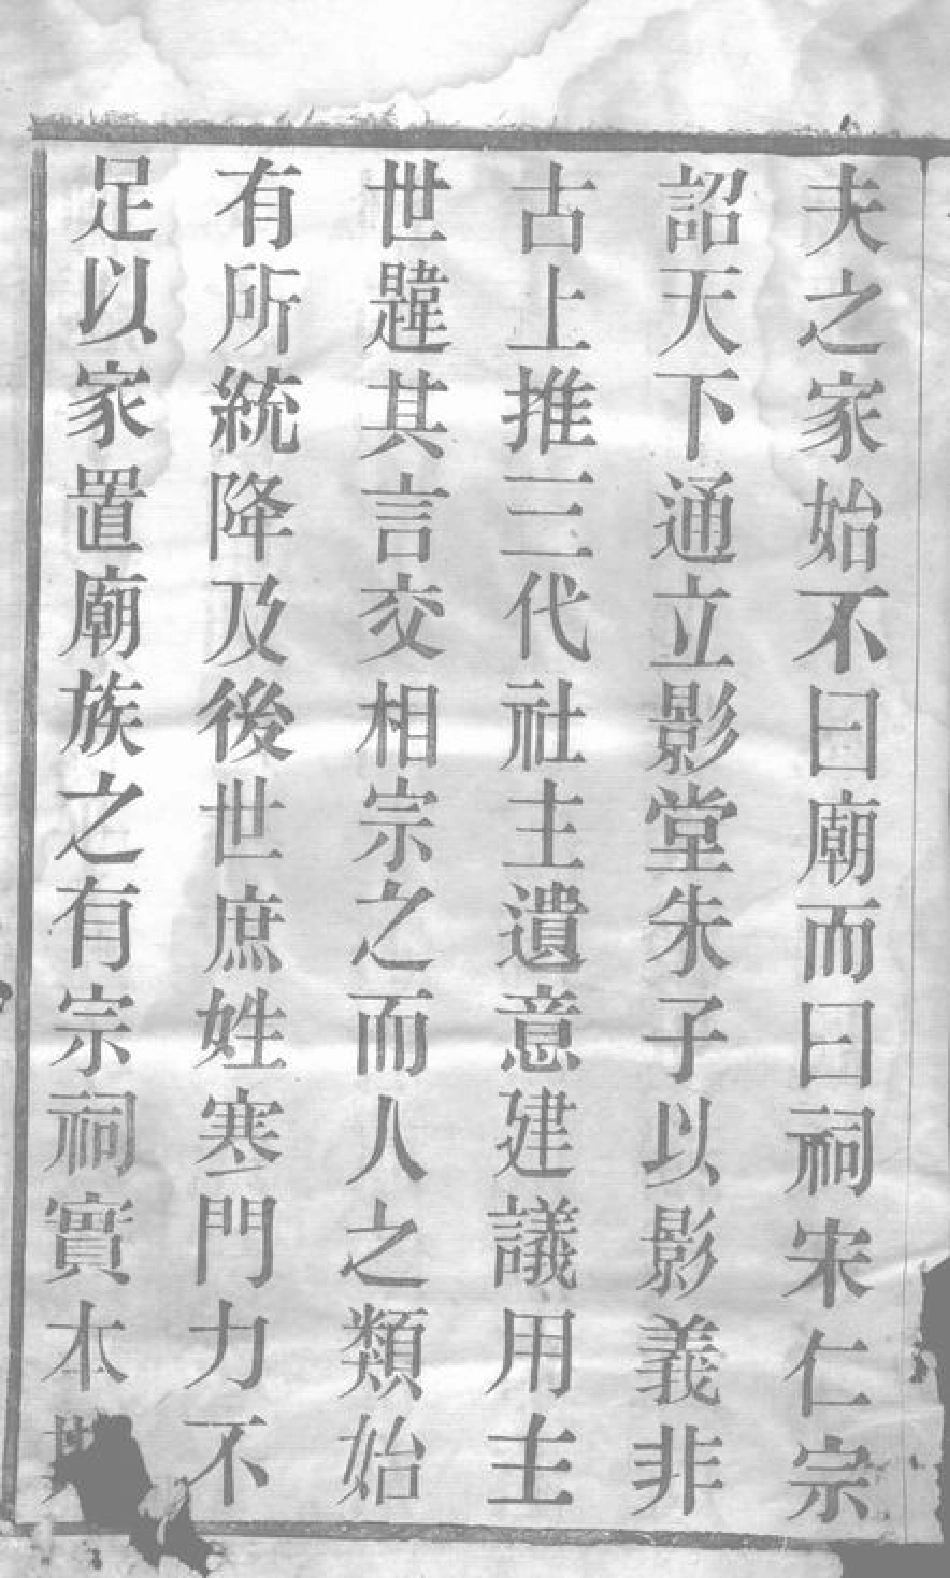 夫之家始不曰廟而曰祠宋仁宗
詔天下通立影堂朱子以影義非
古上推三代社主遺意建議用主
世韙其言交相宗之而人之類始
有所統降及後世庶姓寒門力不
足以家置廟族之有宗祠實本